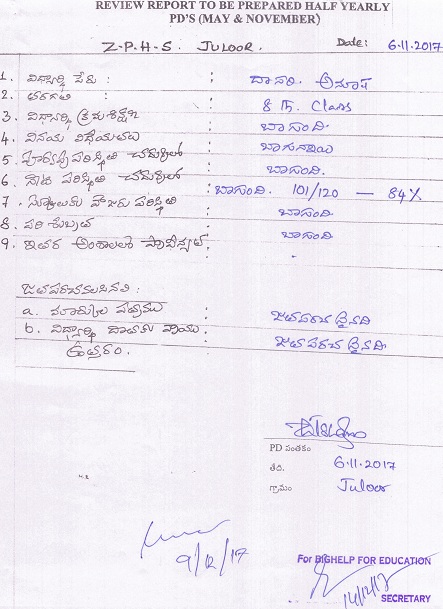 REVIEW REPORT TO BE PREPARED HALF YEARLY
PD'S (MAY & NOVEMBER)
Z-P-H-S. JULOOR. Date: 6-11-2017
1. విద్యార్థి పేరు : దాసరి. అనూష
2. తరగతి : 8 th. Class
3. విద్యార్థి క్రమశిక్షణ : బాగుంది.
4. వినయ విధేయతలు : బాగున్నాయి
5. పూర్వపు పరిస్థితి చదువులో : బాగుంది.
6. నేటి పరిస్థితి చదువులో : బాగుంది. 101/120 — 84%
7. స్కూలుకు హాజరు పరిస్థితి : బాగుంది
8. పరిశుభ్రత : బాగుంది
9. ఇతర అంశాలలో : -
జతపరచవలసినవి :
a. మార్కుల పత్రము : జతపరచ బైనది
b. విద్యార్థి దాతకు వ్రాయు : జతపరచ బైనది.
ఉత్తరం.
PD సంతకం
తేది. 6-11-2017
గ్రామం Juloor
9/12/17
For BIGHELP FOR EDUCATION
14/12/17
SECRETARY